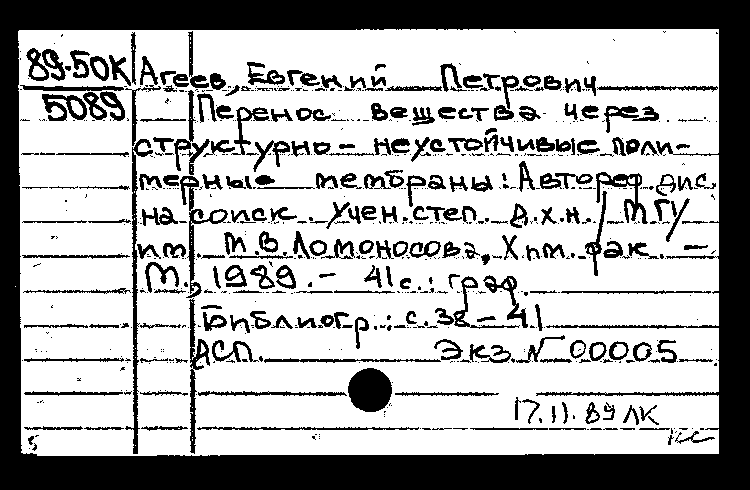 89-50К Агеев, Евгений Петрович
5089 Перенос вещества через
структурно-неустойчивые поли-
мерные мембраны: Автореф. дис.
на соиск. учен. степ. д.х.н. / МГУ
им. М.В. Ломоносова, Хим. фак. -
М., 1989. - 41 с.: граф.
Библиогр.: с. 38-41
АСП. Экз. № 00005
17.11.89 ЛК
5